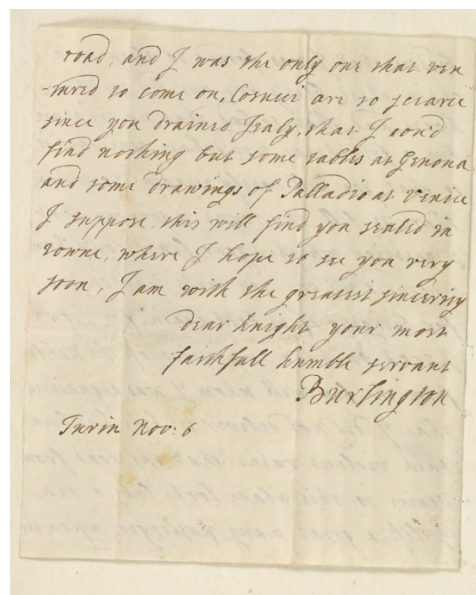 road, and I was the only one that ven
-tured to come on, Cosucci are so scarce
since you drained Italy, that I cou'd
find nothing but some tables at Genoua
and some drawings of Palladio at Venice
I suppose this will find you settled in
towne, where I hope to see you very
soon, I am with the greatest sincerity
dear knight your most
faithfull humble servant
Burlington
Turin Nov: 6